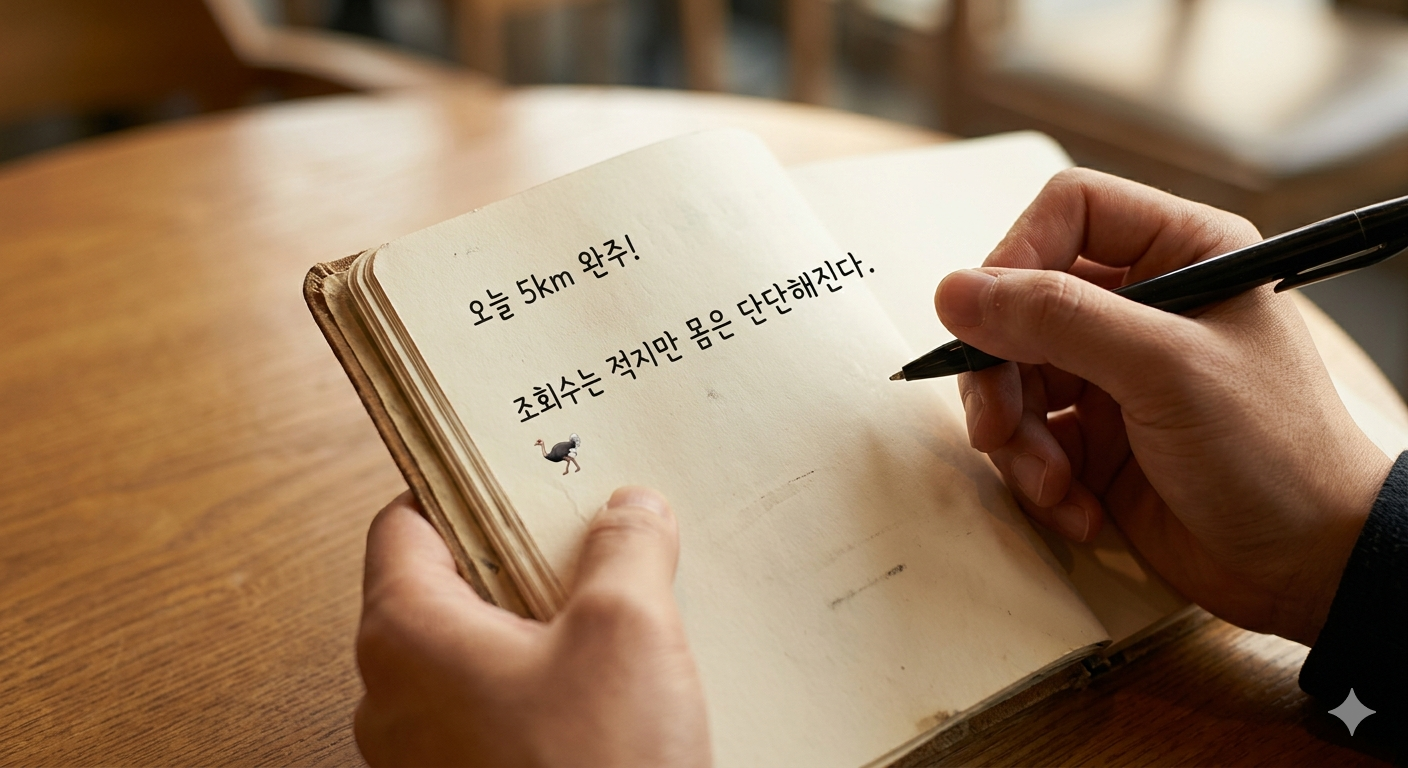 오늘 5km 완주!
조회수는 적지만 몸은 단단해진다.